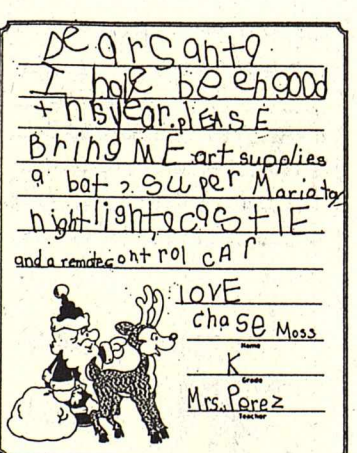 DearSanta
I hove be engood
thisyear.plEASE
Bring ME art supplies
a bat, super Mario toy
nightlight,acastlE
and a remotecontrol cAr
lOVE
chase Moss
Name
K
Grade
Mrs. Perez
Teacher